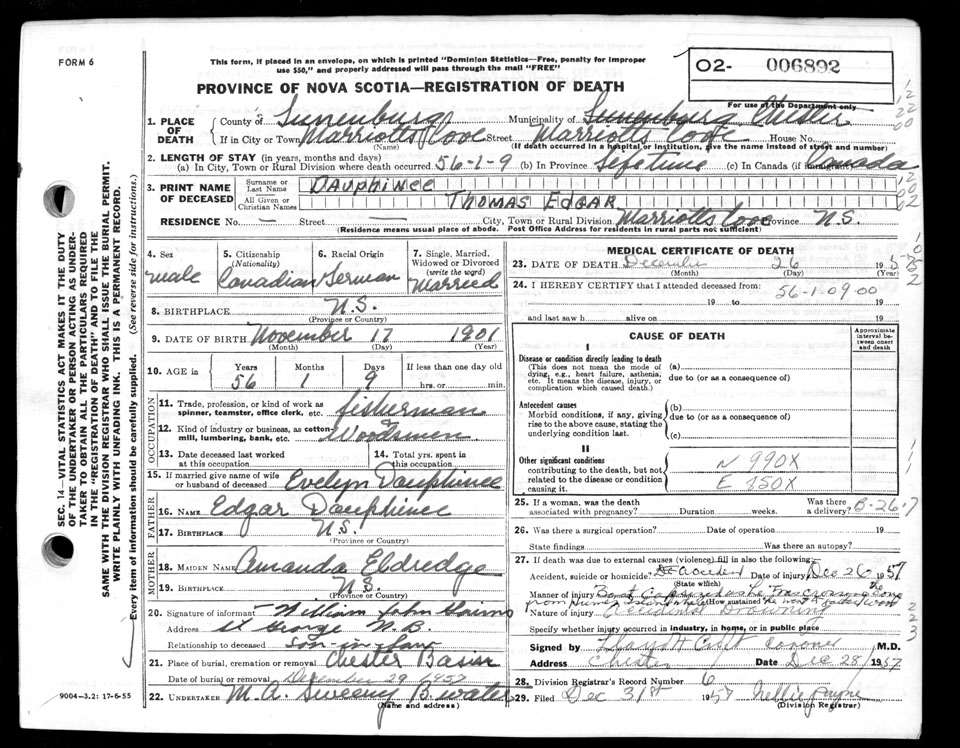 FORM 6
This form, if placed in an envelope, on which is printed "Dominion Statistics—Free, penalty for improper
use $50," and properly addressed will pass through the mail "FREE"
O2- 006892
PROVINCE OF NOVA SCOTIA—REGISTRATION OF DEATH
For use of the Department only
1. PLACE OF DEATH
County of Lunenburg Municipality of Lunenburg Chester
If in City or Town Marriotts Cove Street Marriotts Cove House No.
(Name) (If death occurred in a hospital or institution, give the name instead of street and number)
2. LENGTH OF STAY (in years, months and days)
(a) In City, Town or Rural Division where death occurred 56-1-9 (b) In Province Lifetime (c) In Canada (if immigrant) Canada
3. PRINT NAME OF DECEASED
Surname or Last Name DAUPHINEE
All Given or Christian Names THOMAS EDGAR
RESIDENCE No. — Street — City, Town or Rural Division Marriotts Cove Province N.S.
(Residence means usual place of abode. Post Office Address for residents in rural parts not sufficient)
4. Sex male
5. Citizenship (Nationality) Canadian
6. Racial Origin German
7. Single, Married, Widowed or Divorced (write the word) Married
8. BIRTHPLACE N.S.
(Province or Country)
9. DATE OF BIRTH November 17 1901
(Month) (Day) (Year)
10. AGE in Years 56 Months 1 Days 9 If less than one day old
hrs. or min.
OCCUPATION
11. Trade, profession, or kind of work as
spinner, teamster, office clerk, etc. fisherman
12. Kind of industry or business, as cotton-
mill, lumbering, bank, etc. Woodsmen
13. Date deceased last worked
at this occupation
14. Total yrs. spent in
this occupation
15. If married give name of wife
or husband of deceased Evelyn Dauphinee
FATHER
16. NAME Edgar Dauphinee
17. BIRTHPLACE N.S.
(Province or Country)
MOTHER
18. MAIDEN NAME Amanda Eldredge
19. BIRTHPLACE N.S.
(Province or Country)
20. Signature of informant William John
Address St George N.B.
Relationship to deceased Son-in-law
21. Place of burial, cremation or removal Chester Basin
Date of burial or removal December 29 1957
22. UNDERTAKER M.A. Sweeny B.water
(Name and address)
MEDICAL CERTIFICATE OF DEATH
23. DATE OF DEATH December 26 195
(Month) (Day) (Year)
24. I HEREBY CERTIFY that I attended deceased from:
56-1-09-00
19 to 19
and last saw h alive on 19
CAUSE OF DEATH
Approximate interval between onset and death
I
Disease or condition directly leading to death
(This does not mean the mode of
dying, e.g., heart failure, asthenia,
etc. It means the disease, injury, or
complication which caused death.)
(a)
due to (or as a consequence of)
Antecedent causes
Morbid conditions, if any, giving
rise to the above cause, stating the
underlying condition last.
(b)
due to (or as a consequence of)
(c)
II
Other significant conditions
contributing to the death, but not
related to the disease or condition
causing it.
N 990X
E 850X
25. If a woman, was the death
associated with pregnancy? Duration weeks. Was there a delivery? B-26-7
26. Was there a surgical operation? Date of operation 19
State findings Was there an autopsy?
27. If death was due to external causes (violence) fill in also the following:
Accident, suicide or homicide? Accident Date of injury Dec 26 1957
(State which)
Manner of injury Boat Capsized
(How sustained)
Nature of injury Accidental Drowning
Specify whether injury occurred in industry, in home, or in public place
Signed by Coroner M.D.
Address Chester Date Dec 28 1957
28. Division Registrar's Record Number 6
29. Filed Dec 31st 1957 Nellie Payne
(Division Registrar)
SEC. 14—VITAL STATISTICS ACT MAKES IT THE DUTY
OF THE UNDERTAKER OR PERSON ACTING AS UNDER-
TAKER TO OBTAIN ALL THE PARTICULARS REQUIRED
IN THE "REGISTRATION OF DEATH" AND TO FILE THE
SAME WITH THE DIVISION REGISTRAR WHO SHALL ISSUE THE BURIAL PERMIT.
WRITE PLAINLY WITH UNFADING INK. THIS IS A PERMANENT RECORD.
Every item of information should be carefully supplied. (See reverse side for instructions.)
9004-3.2: 17-6-55